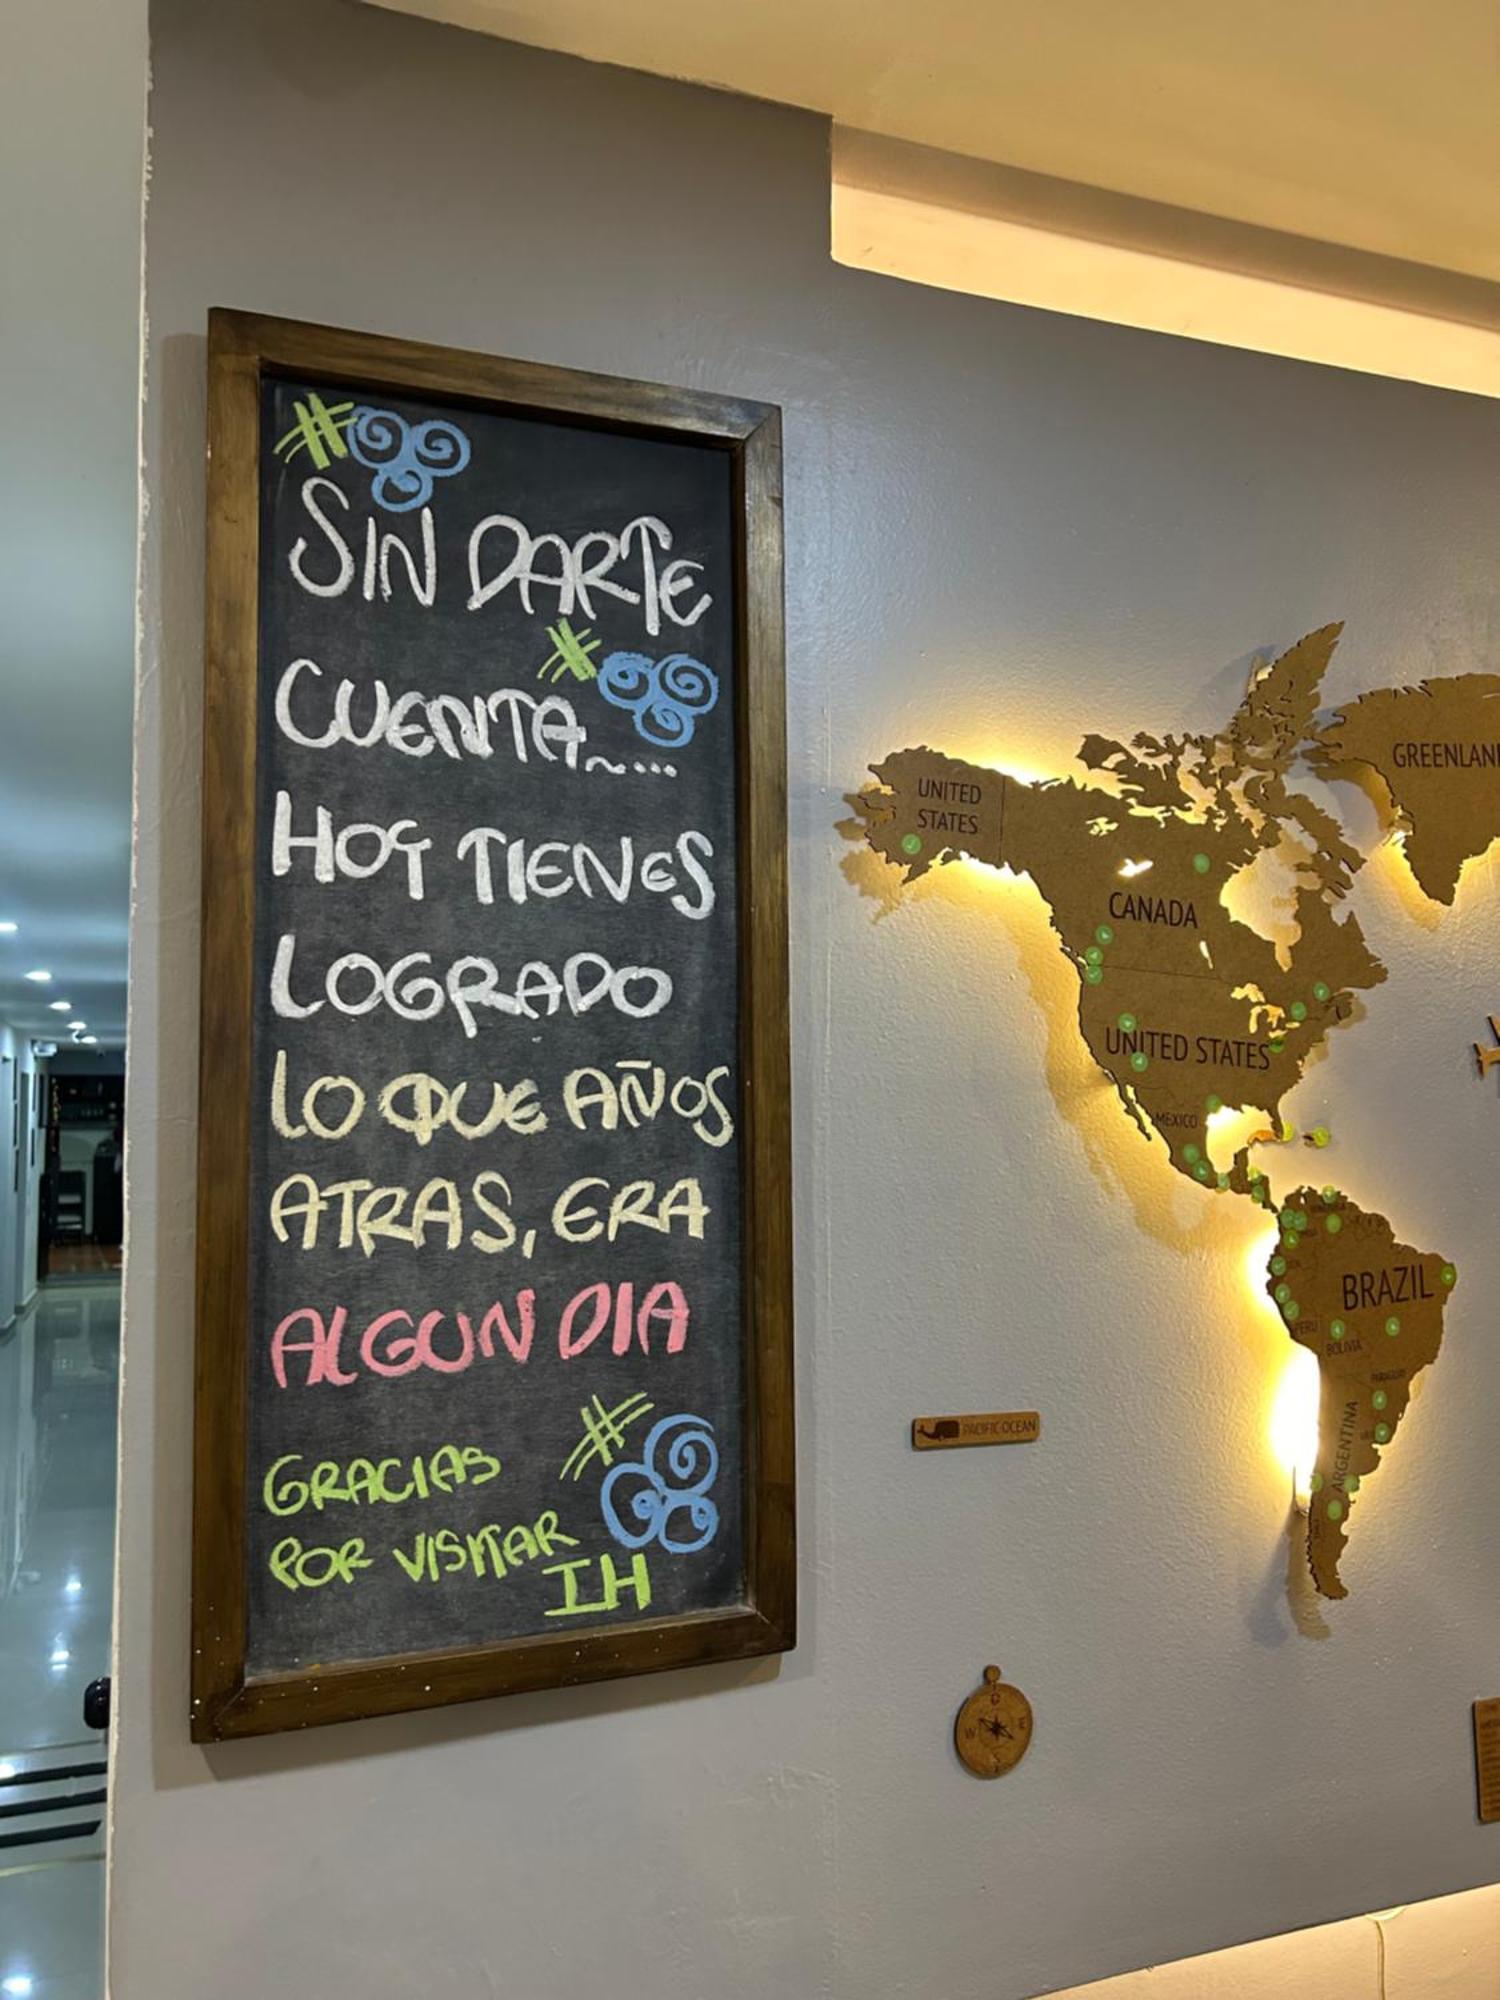 #
SIN DARTE
#
CUENTA~...
HOY TIENES
LOGRADO
LO QUE AÑOS
ATRAS, ERA
ALGUN DIA
#
GRACIAS
POR VISITAR
IH
UNITED
STATES
GREENLAN
CANADA
UNITED STATES
MEXICO
BRAZIL
PERU
BOLIVIA
PARAGUAY
ARGENTINA
PACIFIC OCEAN
W E
S